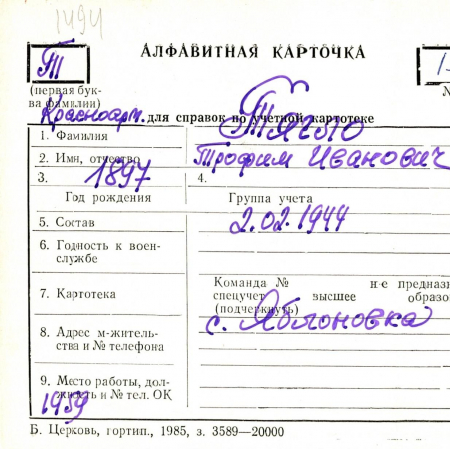 1494
АЛФАВИТНАЯ КАРТОЧКА
Т
(первая бук-
ва фамилии)
Красноарм. для справок по учетной картотеке
1. Фамилия Тягло
2. Имя, отчество Трофим Иванович
3. 1897 4.
Год рождения Группа учета
5. Состав 2.02.1944
6. Годность к воен-
службе
Команда № не предназ
7. Картотека спецучет высшее образо
(подчеркнуть)
8. Адрес м-житель- с. Яблоновка
ства и № телефона
9. Место работы, дол-
жность и № тел. ОК
1959
Б. Церковь, гортип., 1985, з. 3589—20000